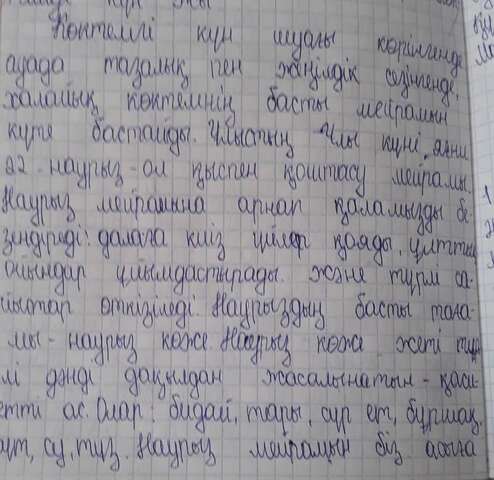 Көктемгі күн шуағы көрінгенде,
ауада тазалық пен жеңілдік сезінгенде,
халайық көктемнің басты мейрамын
күте бастайды. Ұлыстың Ұлы күні, яғни
22-наурыз-ол қыспен қоштасу мейрамы.
Наурыз мейрамына арнап қаламызды бе-
зендіреді: далаға киіз үйлер қояды, ұлттық
ойындар ұйымдастырады. және түрлі са-
йыстар өткізіледі. Наурыздың басты тағa-
мы - наурыз көже. Наурыз көже жеті түр
лі дәнді дақылдан жасалынатын - қаси-
етті ас. Олар: бидай, тары, сүр ет, бұршақ,
сүт, су, тұз. Наурыз мейрамын біз асыға